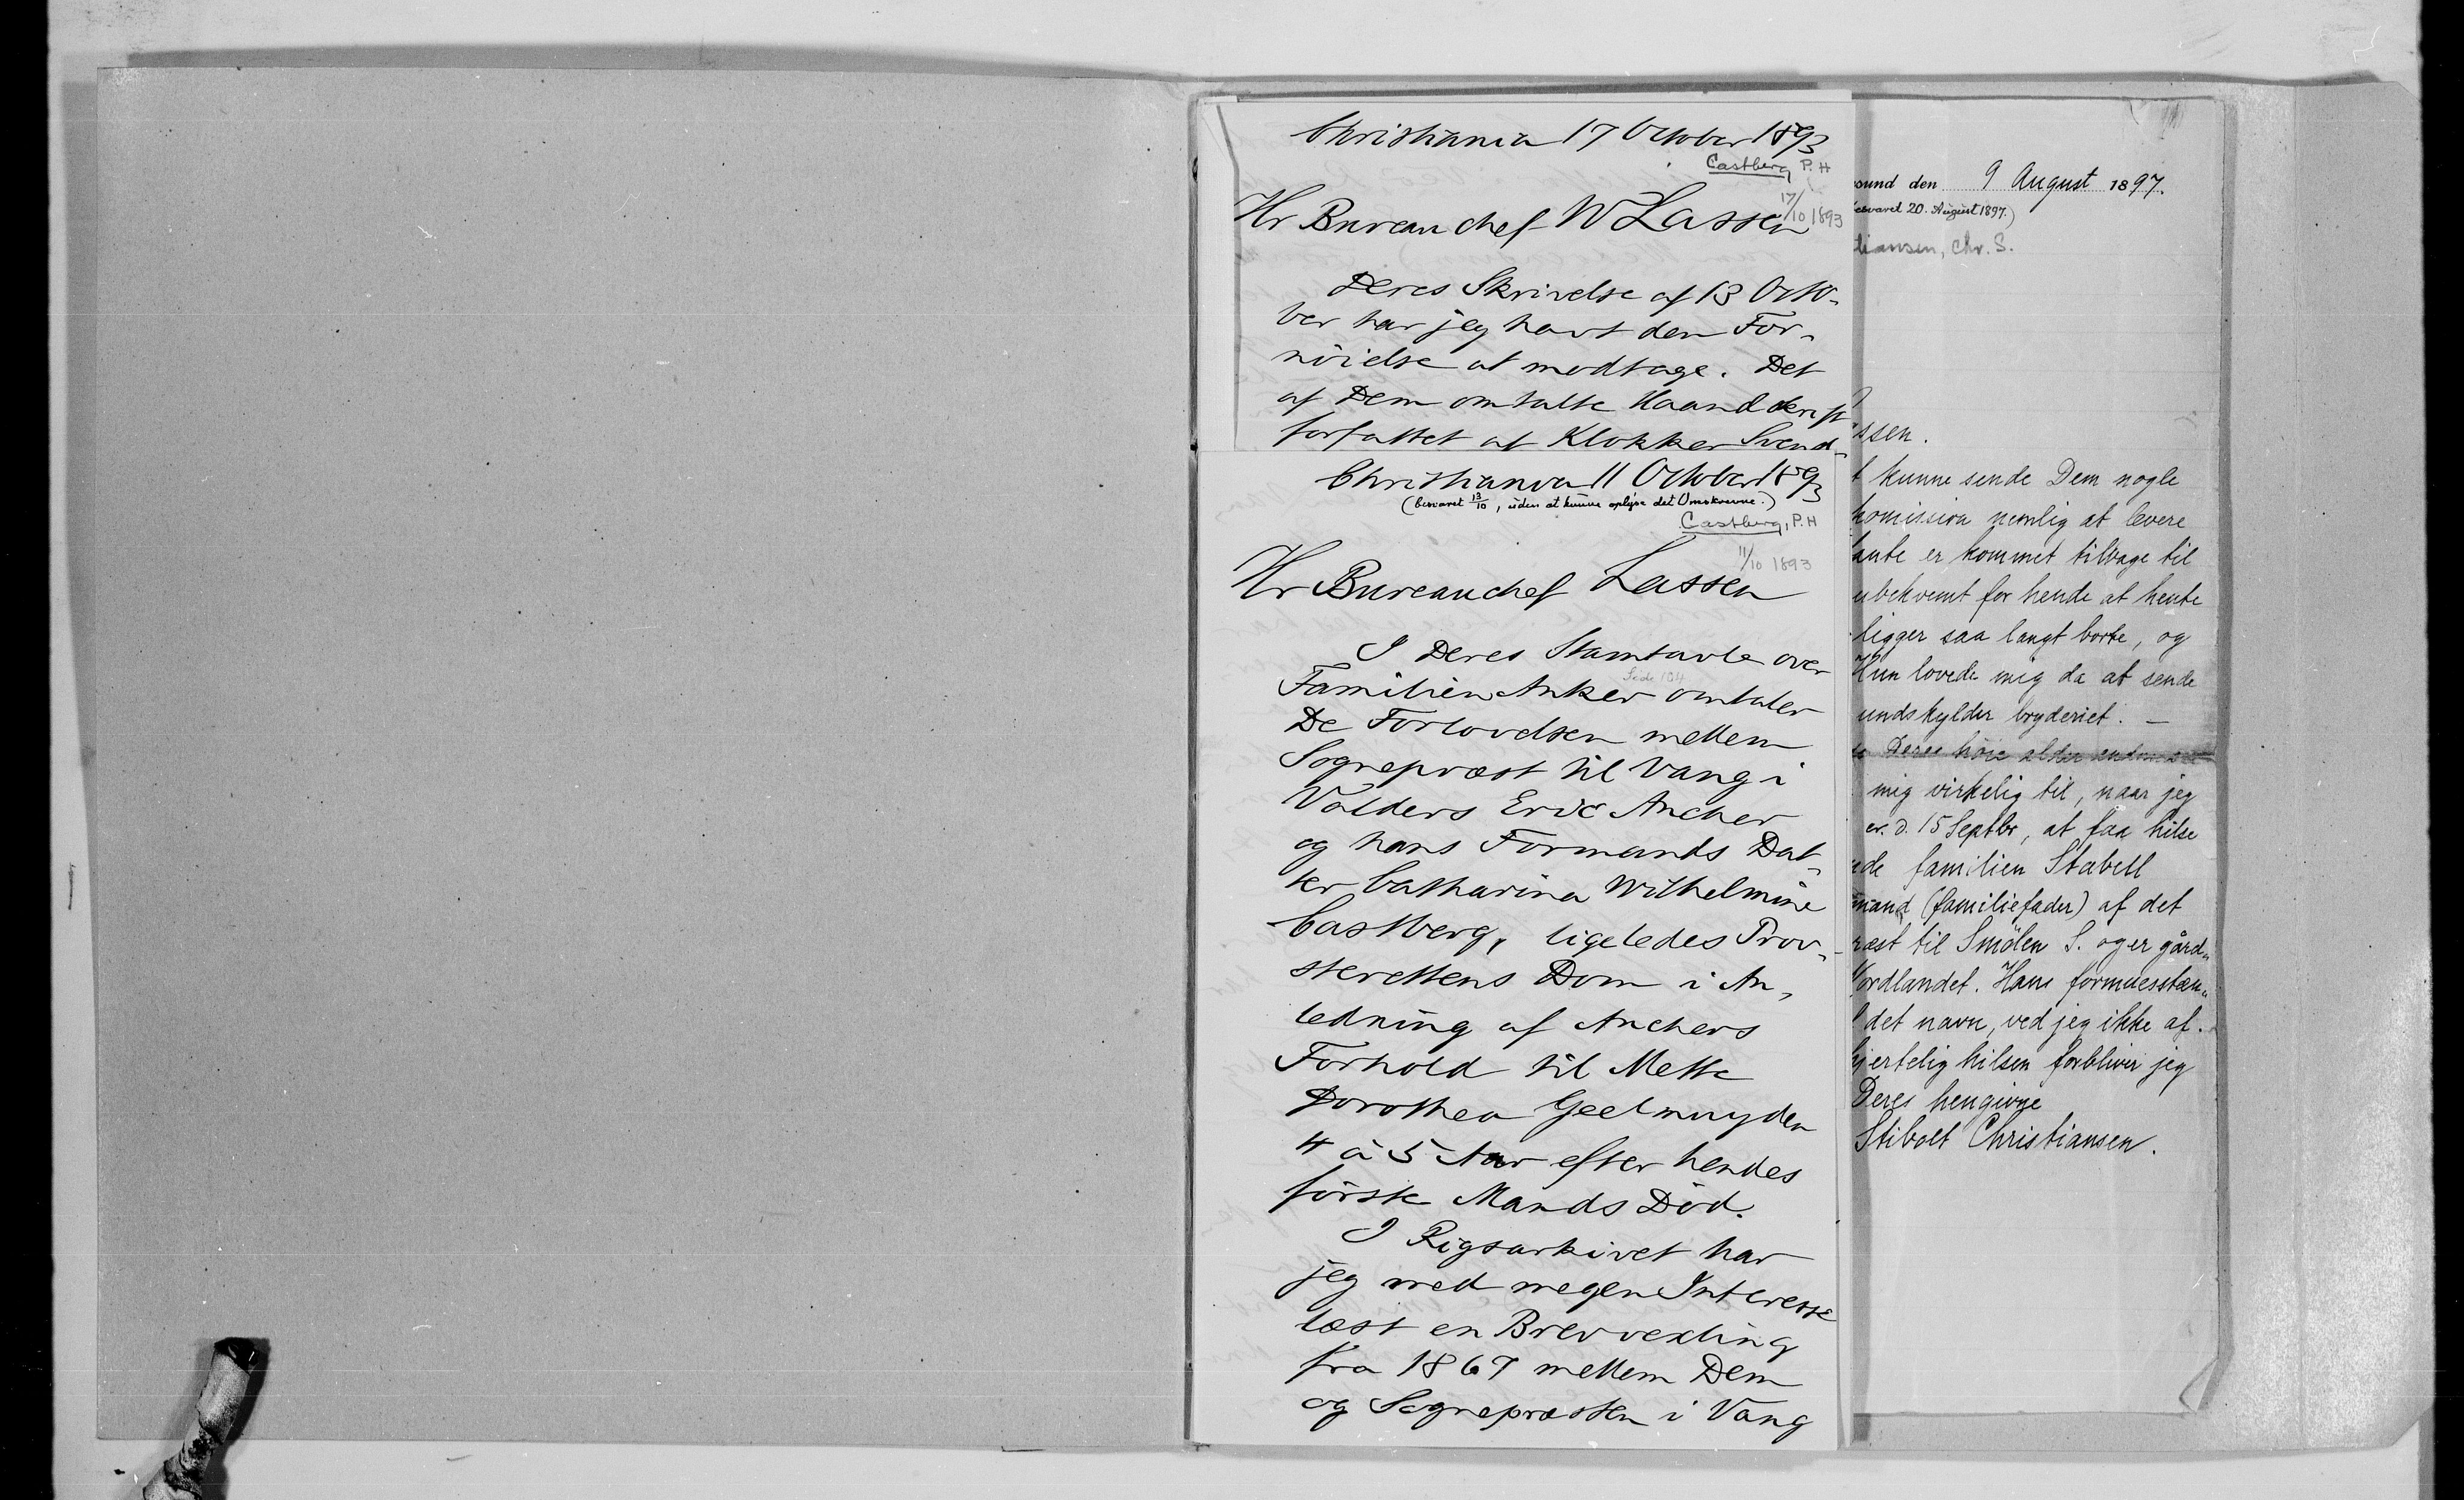 Christiania 17 October 1893
Castberg, P. H
17/10 1893
Hr Bureauchef W Lassen
Deres Skrivelse af 13 Octo-
ber har jeg havt den For-
nöielse at modtage. Det
af Dem omtalte Haandskrift
forfattet af Klokker Svend-
Christiania 11 October 1893
(besvaret 13/10, uden at kunne oplyse det Omskrevne.)
Castberg, P. H
11/10 1893
Hr Bureauchef Lassen
I Deres Stamtavle over
Side 104
Familien Anker omtaler
De Forlovelsen mellem
Sognepræst til Vang i
Valders Eric Ancher
og hans Formands Dat-
ter Catharina Wilhelmine
Castberg, ligeledes Prov-
sterettens Dom i An-
ledning af Anchers
Forhold til Mette
Dorothea Geelmuyden
4 à 5 Aar efter hendes
förste Mands Död.
I Rigsarkivet har
jeg med megen Interesse
læst en Brevvexling
fra 1867 mellem Dem
og Sognepræsten i Vang
sund den 9 August 1897.
esvaret 20. August 1897.)
tiansen, Chr. S.
ssen.
t kunne sende Dem nogle
komission nemlig at levere
tante er kommet tilbage til
ubekvemt for hende at hente
ligger saa langt borte, og
Hun lovede mig da at sende
undskylder bryderiet. —
Deres höie alder
mig virkelig til, naar jeg
er d. 15 Septbr, at faa hilse
de familien Stabell
mand (familiefader) af det
ræst til Smölen S. og er gård-
Nordlandet. Hans formuesstæn-
det navn, ved jeg ikke af.
hjertelig hilsen forbliver jeg
Deres hengivne
Stibolt Christiansen.